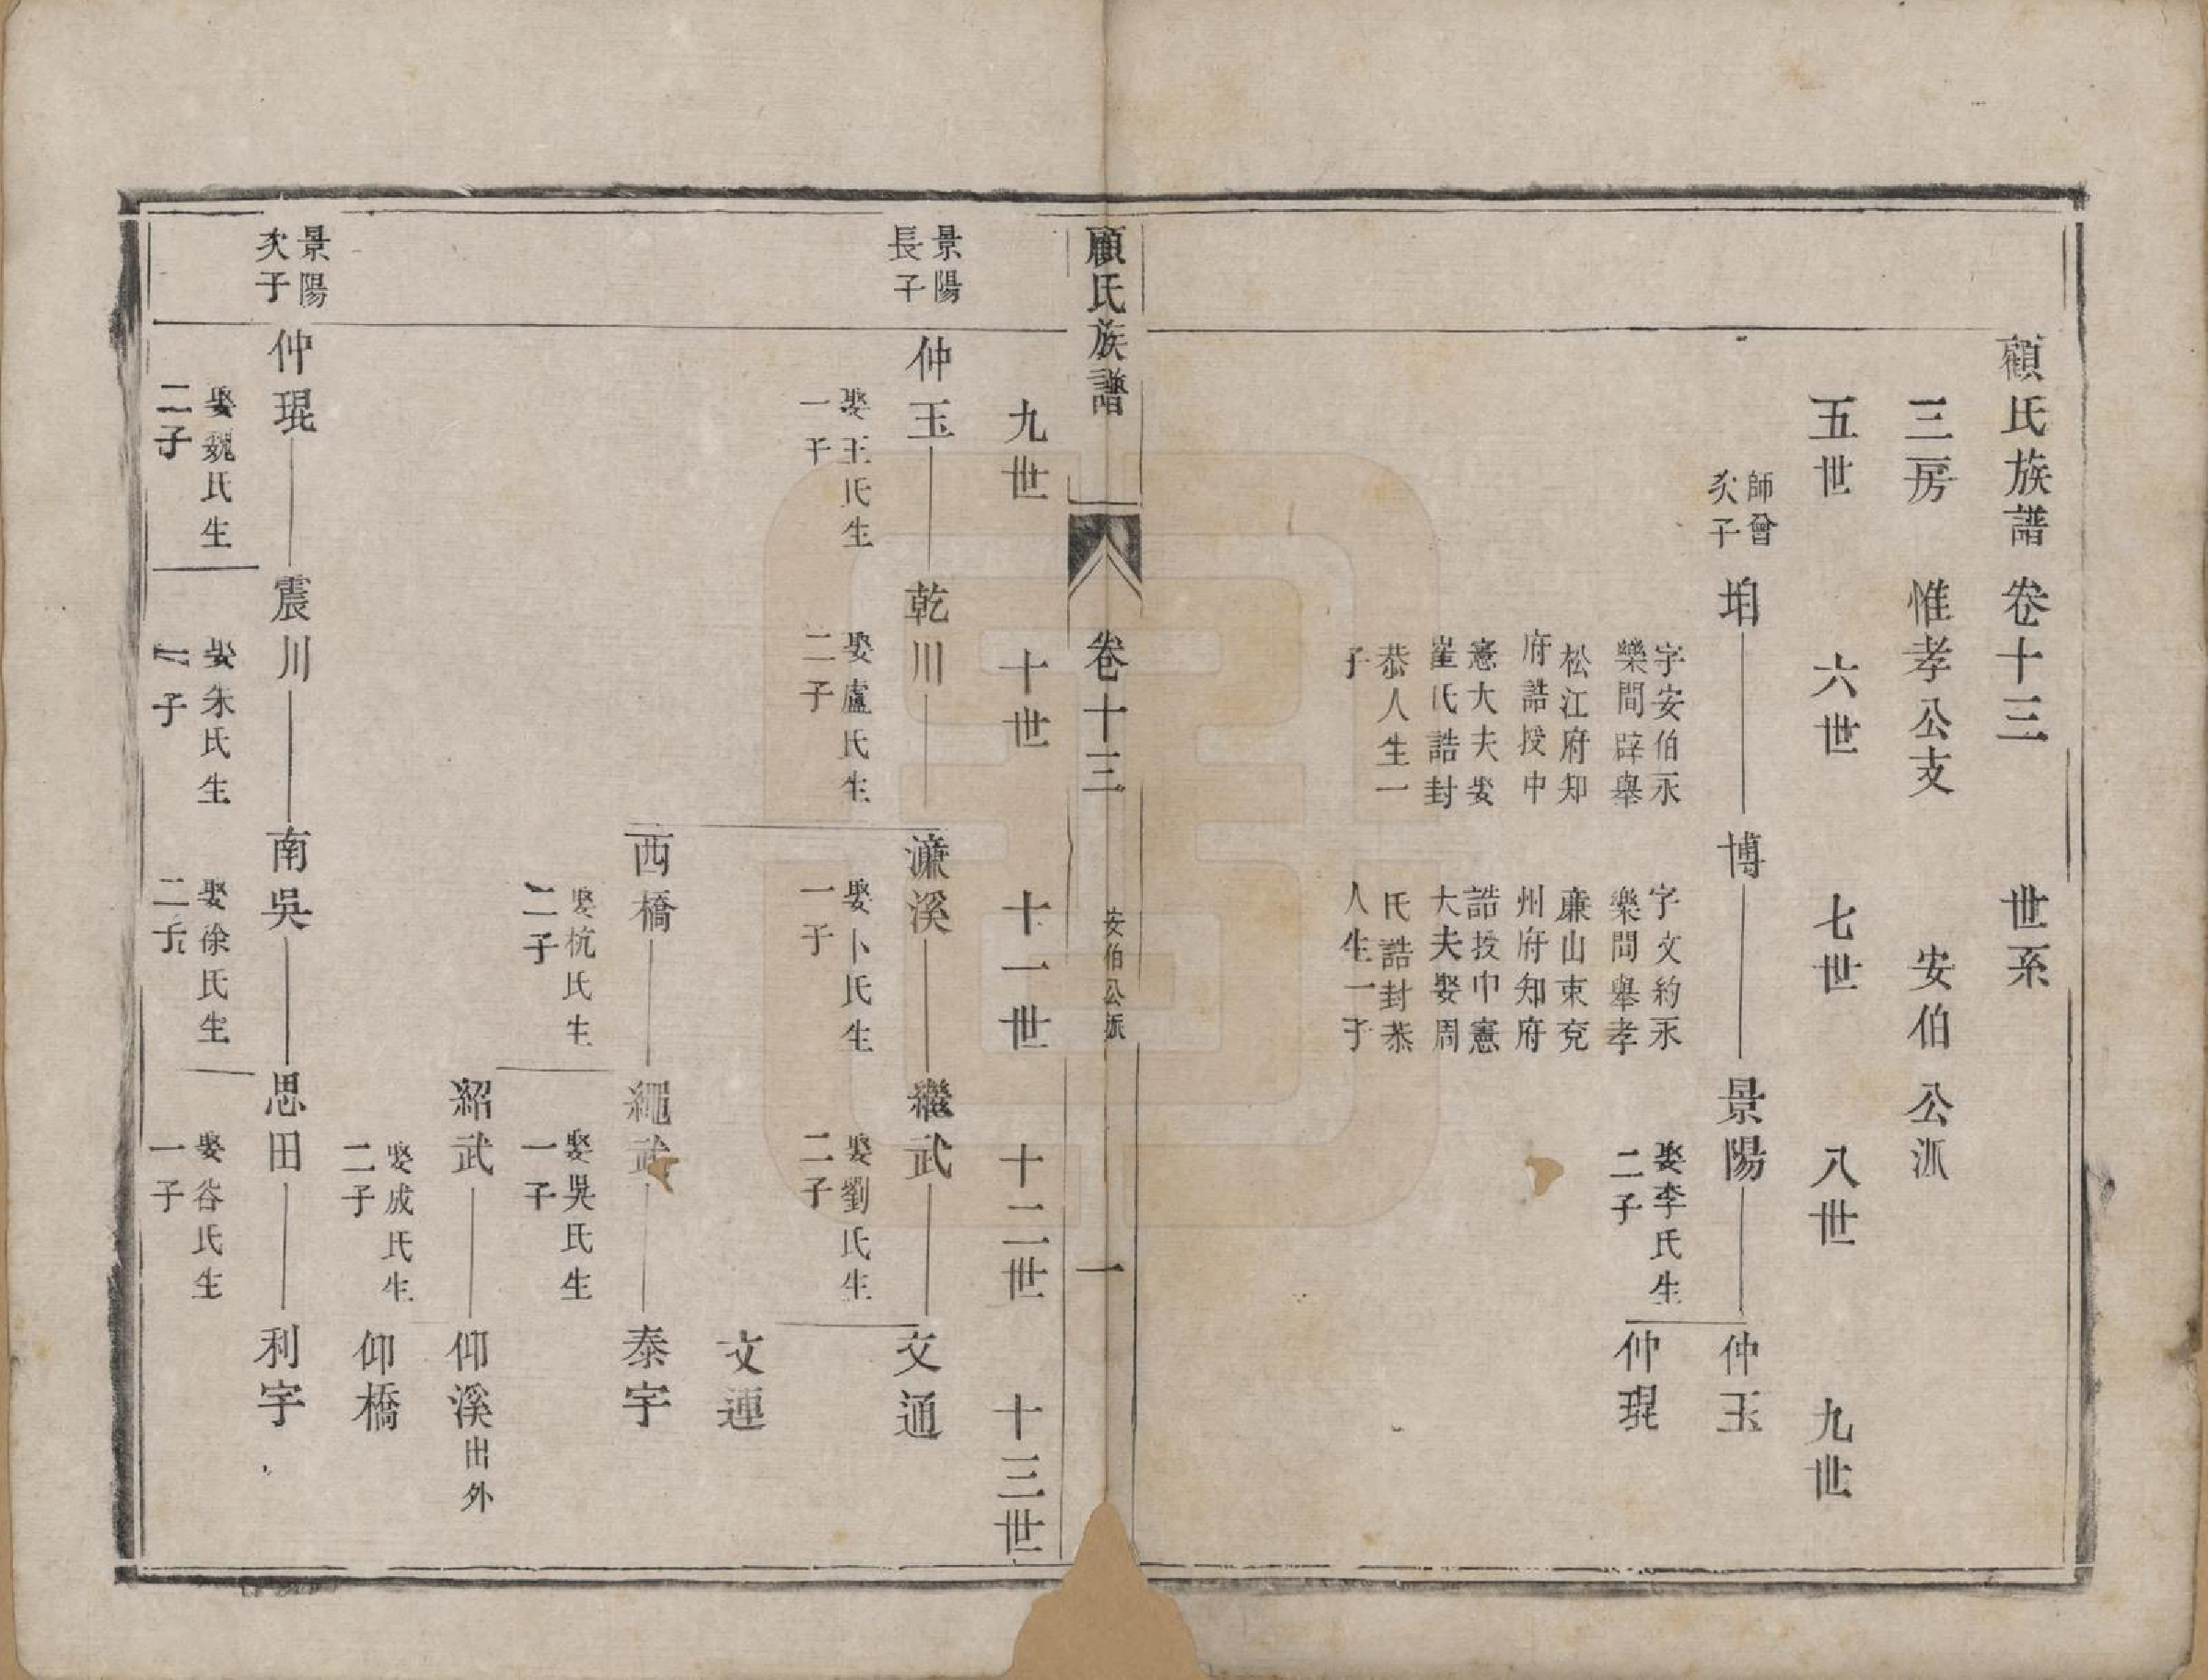 顧氏族譜 卷十三 世系
三房 惟孝公支 安伯公派
五世 六世 七世 八世 九世
師曾
次子
珀
字安伯永
樂間辟舉
松江府知
府誥授中
憲大夫娶
崔氏誥封
恭人生一
子
博
字文約永
樂間舉孝
廉山東兗
州府知府
誥授中憲
大夫娶周
氏誥封恭
人生一子
景陽
娶李氏生
二子
仲玉
仲琨
顧氏族譜 卷十三 安伯公派 一
九世 十世 十一世 十二世 十三世
景陽
長子
仲玉
娶王氏生
一子
乾川
娶盧氏生
二子
濂溪
娶卜氏生
一子
繼武
娶劉氏生
二子
文通
文運
西橋
娶杭氏生
二子
繩武
娶吳氏生
一子
泰宇
紹武
娶成氏生
二子
仰溪出外
仰橋
景陽
次子
仲琨
娶魏氏生
二子
震川
娶朱氏生
一子
南吳
娶徐氏生
二子
思田
娶谷氏生
一子
利宇